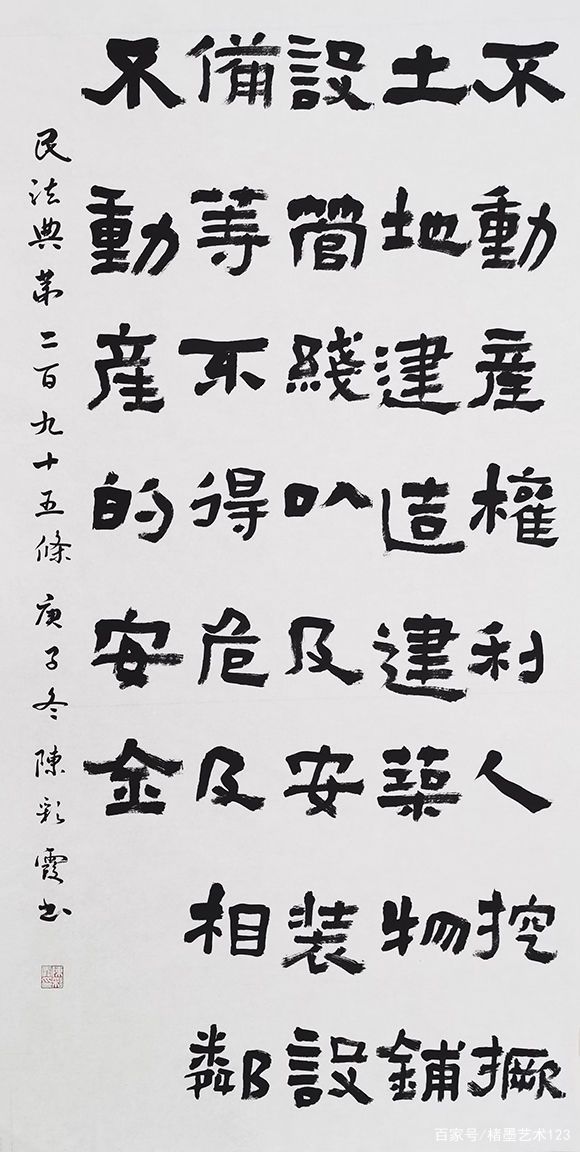 不動産權利人挖撅
土地建造建築物鋪
設管綫以及安装設
備等不得危及相鄰
不動産的安全
民法典第二百九十五條 庚子冬 陳彩霞书
百家号/楮墨艺术123